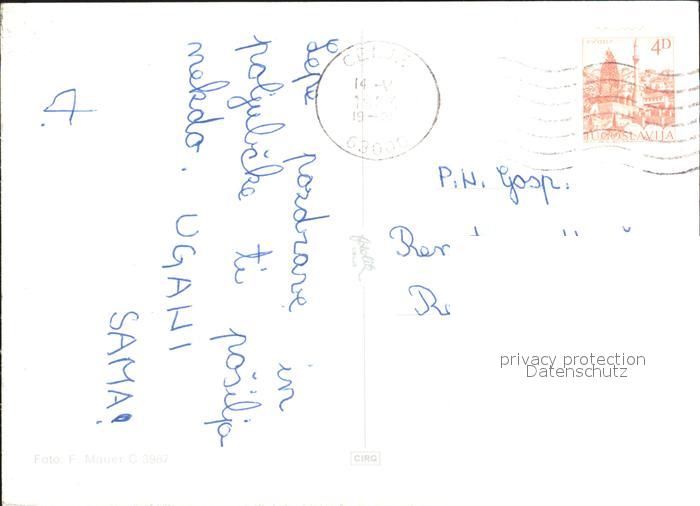 Lepe pozdrave in
poljubčke ti pošilja
nekdo. UGANI
SAMA!
CELJE
14 -V
63000
4D
JUGOSLAVIJA
P.N. Gosp.
privacy protection
Datenschutz
Foto: F. Mauer C 3987
CIRG